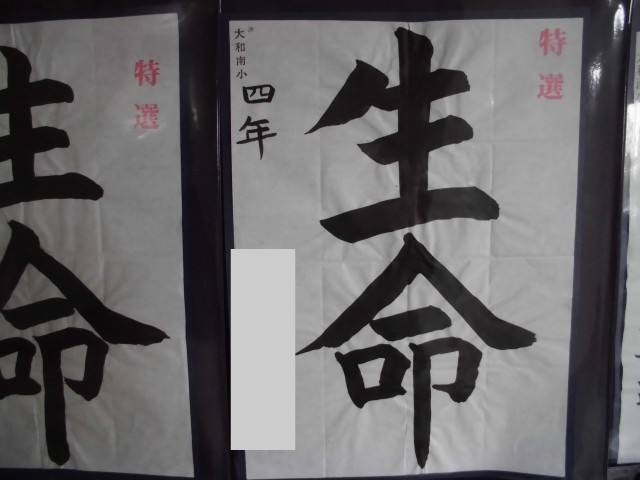 特選
生命
大和南小
四年
特選
生命